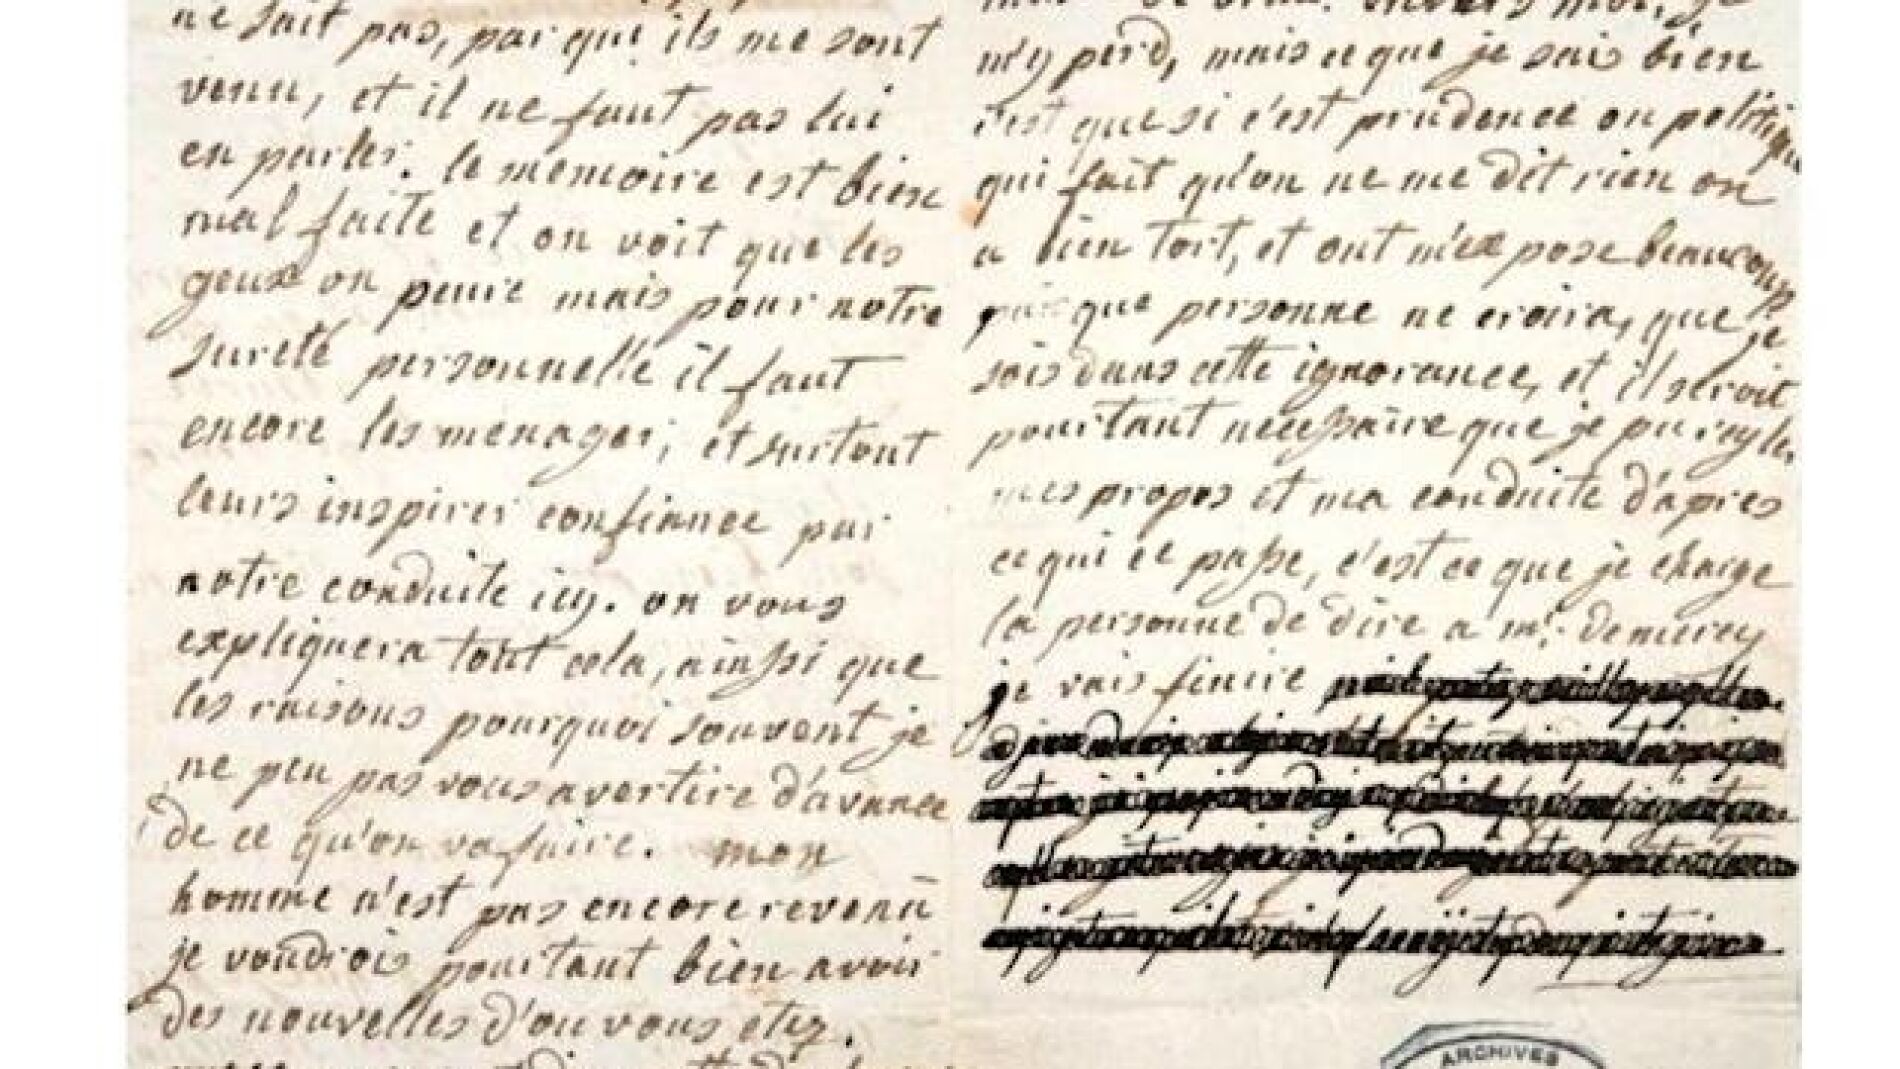 ne sait pas, par qui ils me sont
venu, et il ne faut pas lui
en parler. le memoire est bien
mal faite et on voit que les
geux on peure mais pour notre
sureté personnelle il faut
encore les menager, et surtout
leurs inspirer confiance par
notre conduite icy. on vous
expliquera tout cela, ainssi que
les raisons pourquoi souvent je
ne peu pas vous avertire d'avance
de ce qu'on va faire. mon
homme n'est pas encore revenu
je voudrois pourtant bien avoir
des nouvelles d'ou vous etez.
m'y perd, mais ce que je sais bien
c'est que si c'est prudence ou politique
qui fait qu'on ne me dit rien on
a bien tort, et ont m'expose beaucoup
puisque personne ne croira, que je
sois dans cette ignorance, et il seroit
pourtant necessaire que je pu regler
mes propos et ma conduite d'apres
ce qui ce passe, c'est ce que je charge
la personne de dire a mr. de mercy
je vais finire
ARCHIVES